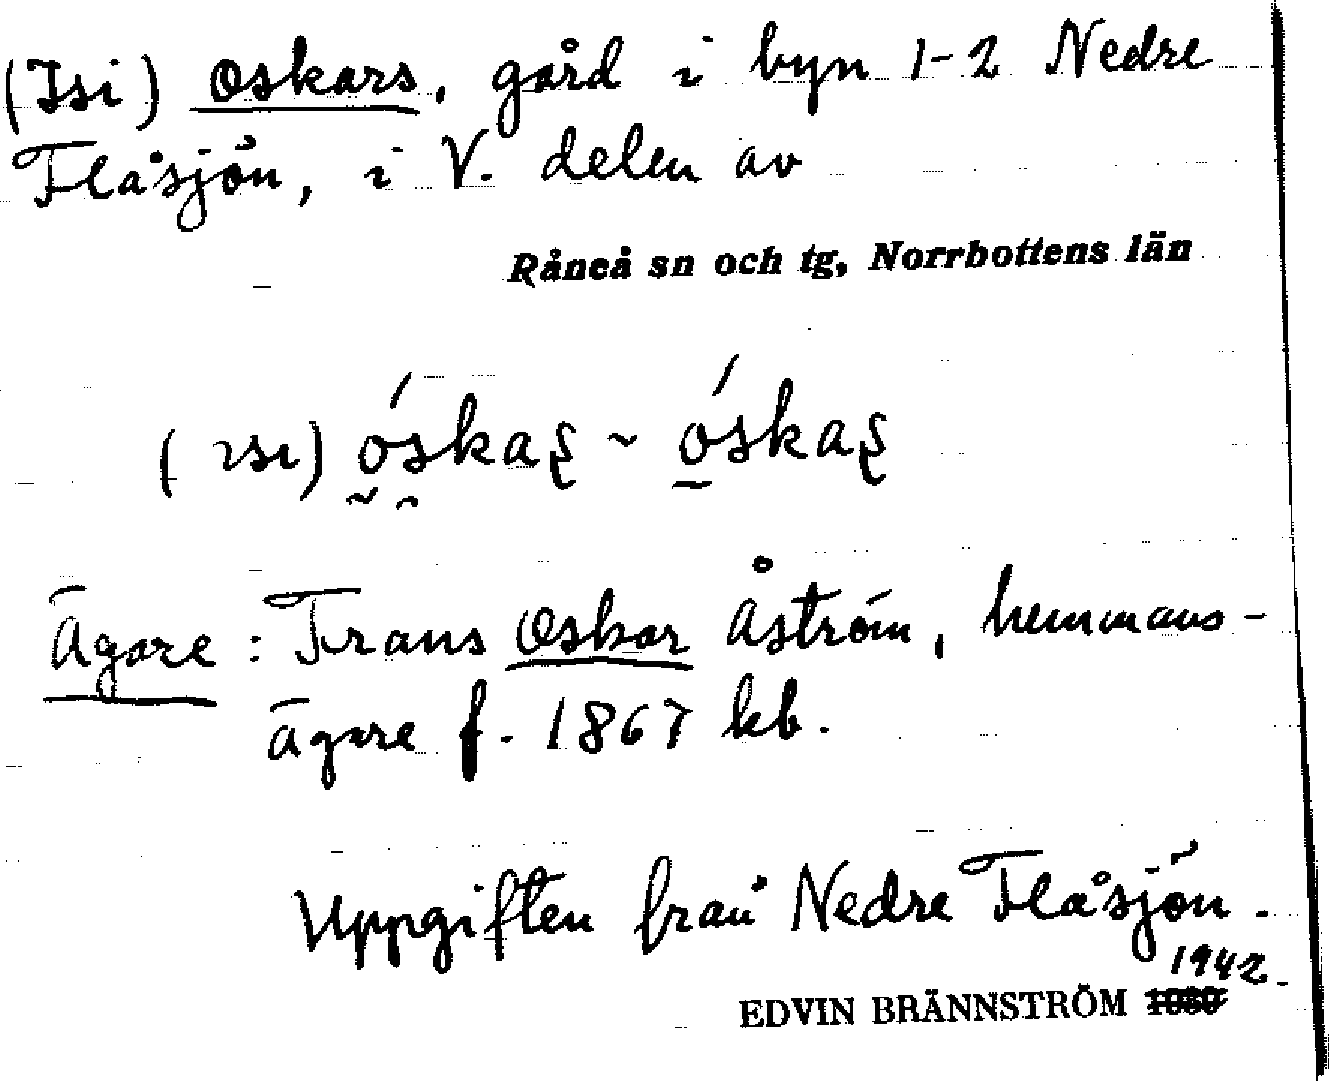 (Isi) Oskars, gård i byn 1-2 Nedre
Flåsjön, i V. delen av
Råneå sn och tg, Norrbottens län
( ısı) óskaʂ ~ óskaʂ
Ägare: Frans Oskar Åström, hemmans-
ägare f. 1867 kb.
Uppgiften från Nedre Flåsjön.
1942
EDVIN BRÄNNSTRÖM